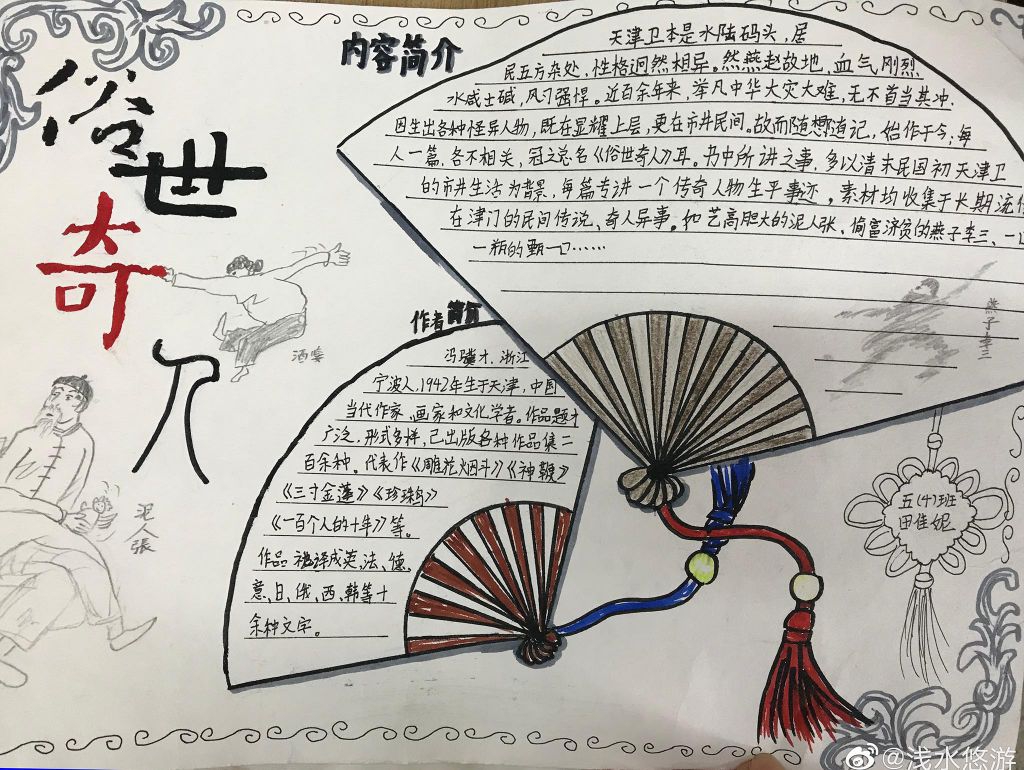 俗世奇人
内容简介
天津卫本是水陆码头，居
民五方杂处，性格迥然相异。然燕赵故地，血气刚烈
水咸土碱，风习强悍。近百余年来，举凡中华大灾大难，无不首当其冲，
因生出各种怪异人物，既在显耀上层，更在市井民间。故而随想随记，始作于今，每
人一篇，各不相关，冠之总名《俗世奇人》耳。书中所讲之事，多以清末民国初天津卫
的市井生活为背景，每篇专讲一个传奇人物生平事迹。素材均收集于长期流传
在津门的民间传说、奇人异事。如艺高胆大的泥人张，偷富济贫的燕子李三、一口
一瓶的甄一口……
燕子李三
酒婆
泥人張
作者简介
冯骥才，浙江
宁波人，1942年生于天津，中国
当代作家、画家和文化学者。作品题才
广泛，形式多样，已出版各种作品集二
百余种。代表作《雕花烟斗》《神鞭》
《三寸金莲》《珍珠鸟》
《一百个人的十年》等。
作品被译成英、法、德、
意、日、俄、西、韩等十
余种文字。
五(4)班
田佳妮
@浅水悠游